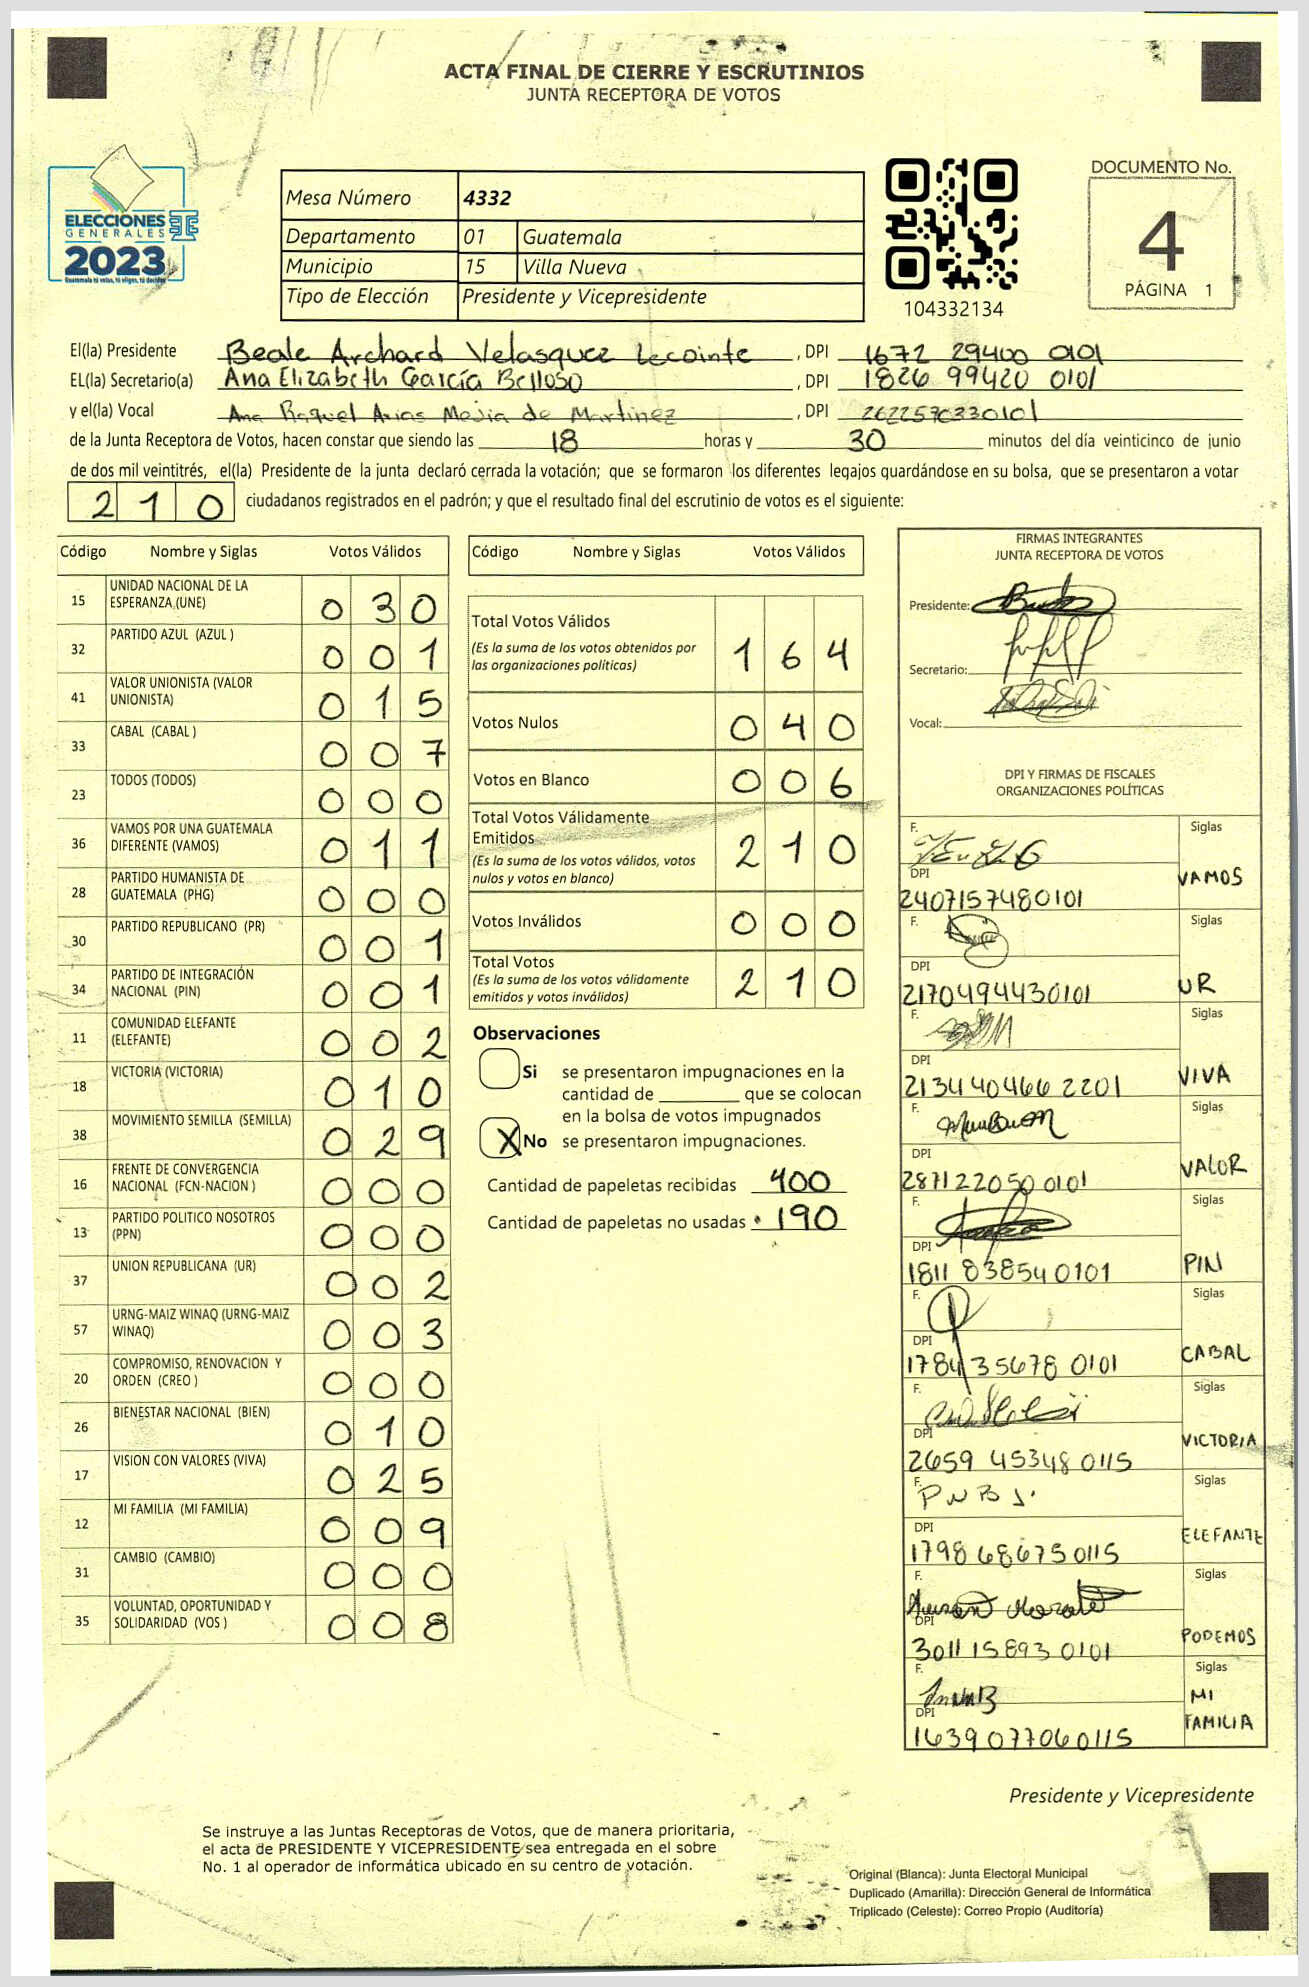 ACTA FINAL DE CIERRE Y ESCRUTINIOS
JUNTA RECEPTORA DE VOTOS
ELECCIONES
GENERALES
2023
Guatemala tú votas, tú eliges, tú decides
Mesa Número 4332
Departamento 01 Guatemala
Municipio 15 Villa Nueva
Tipo de Elección Presidente y Vicepresidente
104332134
DOCUMENTO No.
4
PÁGINA 1
El(la) Presidente Beale Archard Velasquez Lecointe , DPI 1672 29400 0101
EL(la) Secretario(a) Ana Elizabeth García Belloso , DPI 1826 99420 0101
y el(la) Vocal Ana Raquel Arias Mejia de Martinez , DPI 2622570330101
de la Junta Receptora de Votos, hacen constar que siendo las 18 horas y 30 minutos del día veinticinco de junio
de dos mil veintitrés, el(la) Presidente de la junta declaró cerrada la votación; que se formaron los diferentes legajos guardándose en su bolsa, que se presentaron a votar
210 ciudadanos registrados en el padrón; y que el resultado final del escrutinio de votos es el siguiente:
Código Nombre y Siglas Votos Válidos
15 UNIDAD NACIONAL DE LA ESPERANZA (UNE) 030
32 PARTIDO AZUL (AZUL ) 001
41 VALOR UNIONISTA (VALOR UNIONISTA) 015
33 CABAL (CABAL ) 007
23 TODOS (TODOS) 000
36 VAMOS POR UNA GUATEMALA DIFERENTE (VAMOS) 011
28 PARTIDO HUMANISTA DE GUATEMALA (PHG) 000
30 PARTIDO REPUBLICANO (PR) 001
34 PARTIDO DE INTEGRACIÓN NACIONAL (PIN) 001
11 COMUNIDAD ELEFANTE (ELEFANTE) 002
18 VICTORIA (VICTORIA) 010
38 MOVIMIENTO SEMILLA (SEMILLA) 029
16 FRENTE DE CONVERGENCIA NACIONAL (FCN-NACION ) 000
13 PARTIDO POLITICO NOSOTROS (PPN) 000
37 UNION REPUBLICANA (UR) 002
57 URNG-MAIZ WINAQ (URNG-MAIZ WINAQ) 003
20 COMPROMISO, RENOVACION Y ORDEN (CREO ) 000
26 BIENESTAR NACIONAL (BIEN) 010
17 VISION CON VALORES (VIVA) 025
12 MI FAMILIA (MI FAMILIA) 009
31 CAMBIO (CAMBIO) 000
35 VOLUNTAD, OPORTUNIDAD Y SOLIDARIDAD (VOS ) 008
Código Nombre y Siglas Votos Válidos
Total Votos Válidos 164
(Es la suma de los votos obtenidos por
las organizaciones políticas)
Votos Nulos 040
Votos en Blanco 006
Total Votos Válidamente
Emitidos 210
(Es la suma de los votos válidos, votos
nulos y votos en blanco)
Votos Inválidos 000
Total Votos 210
(Es la suma de los votos válidamente
emitidos y votos inválidos)
Observaciones
Si se presentaron impugnaciones en la
cantidad de ________ que se colocan
en la bolsa de votos impugnados
X No se presentaron impugnaciones.
Cantidad de papeletas recibidas 400
Cantidad de papeletas no usadas 190
FIRMAS INTEGRANTES
JUNTA RECEPTORA DE VOTOS
Presidente:
Secretario:
Vocal:
DPI Y FIRMAS DE FISCALES
ORGANIZACIONES POLÍTICAS
F. Siglas
DPI VAMOS
2407157480101
F. Siglas
DPI UR
2170494430101
F. Siglas
DPI VIVA
213440466 2201
F. Siglas
DPI VALOR
287122050 0101
F. Siglas
DPI PIN
1811 838540101
F. Siglas
DPI CABAL
1784 35678 0101
F. Siglas
DPI VICTORIA
2659 45348 0115
F. Siglas
DPI ELEFANTE
1798 68675 0115
F. Siglas
DPI PODEMOS
3011 15893 0101
F. Siglas
DPI MI FAMILIA
1639 07706 0115
Presidente y Vicepresidente
Se instruye a las Juntas Receptoras de Votos, que de manera prioritaria,
el acta de PRESIDENTE Y VICEPRESIDENTE sea entregada en el sobre
No. 1 al operador de informática ubicado en su centro de votación.
Original (Blanca): Junta Electoral Municipal
Duplicado (Amarilla): Dirección General de Informática
Triplicado (Celeste): Correo Propio (Auditoría)